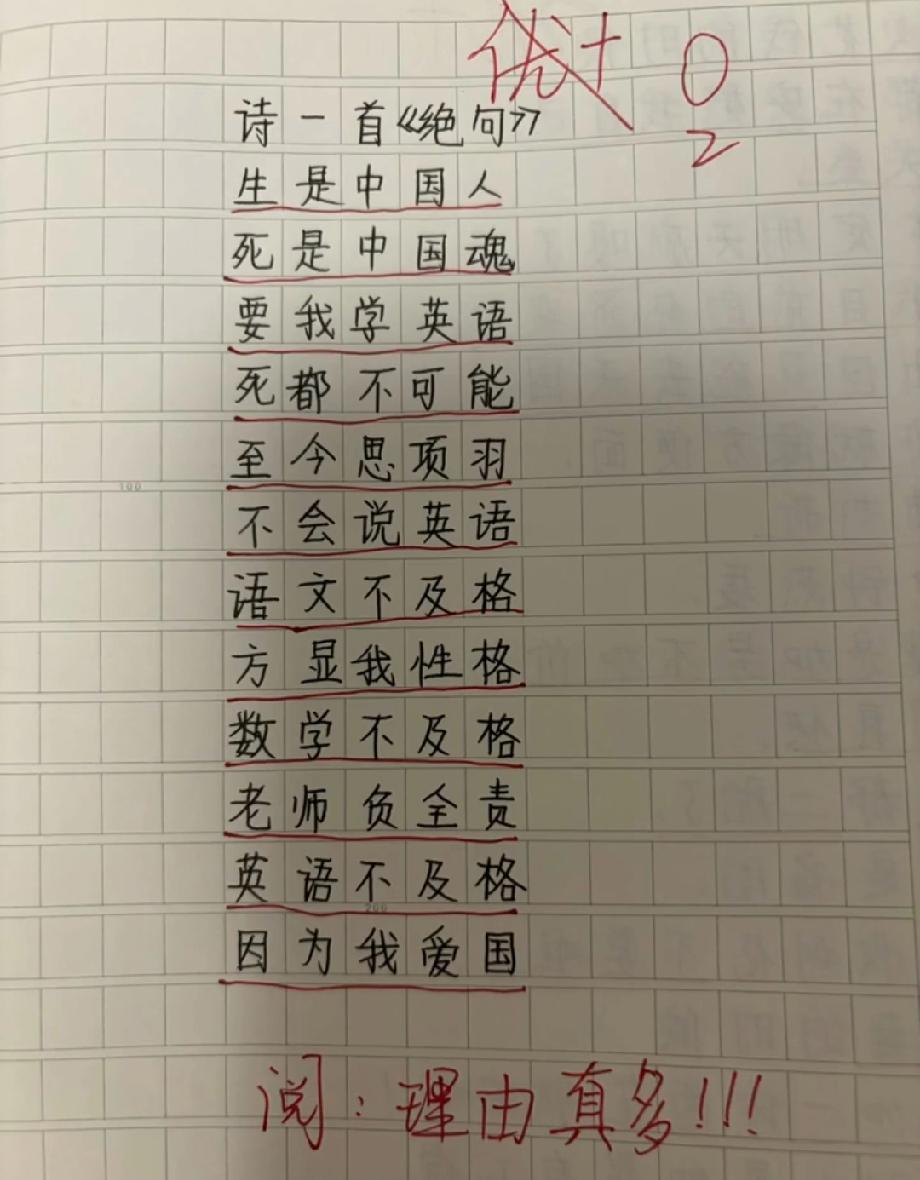 优+ 0
2
诗一首《绝句》
生是中国人
死是中国魂
要我学英语
死都不可能
至今思项羽
不会说英语
语文不及格
方显我性格
数学不及格
老师负全责
英语不及格
200
因为我爱国
阅:理由真多!!!